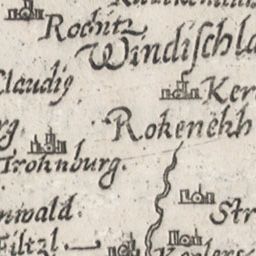 Rochitz
Windischla
Claudig
Ker
rg
Rokenekh
Trohnburg.
Str
nwald.
Filtzl.